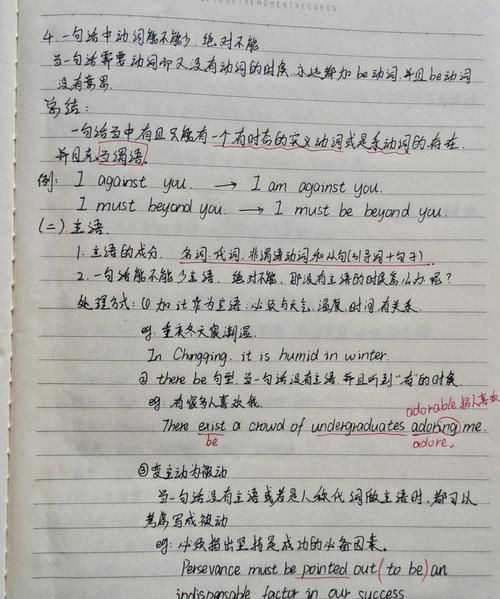 THEMOMENTRECORDS
4. 一句话中动词能不能少, 绝对不能
当一句话需要动词而又没有动词的时候, 永远都加 be动词, 并且 be动词
没有意思.
总结:
一句话当中有且只能有一个有时态的实义动词或是系动词的存在,
并且充当谓语.
例: I against you. → I am against you.
I must beyond you. → I must be beyond you.
(二) 主语
1. 主语的成分. 名词. 代词. 非谓语动词和从句(引导词+句子).
2. 一句话能不能少主语. 绝对不能, 那没有主语的时候怎么办呢?
处理方式: ① 加 it 作为主语, 必须与天气, 温度, 时间有关系.
eg: 重庆冬天很潮湿.
In Chongqing, it is humid in winter.
② there be 句型. 当一句话没有主语 并且听到“有”的时候.
eg: 有很多人喜欢我. adorable 招人喜欢
There exist a crowd of undergraduates adoring me.
be adore.
③ 变主动为被动
当一句话没有主语或者是人称代词做主语时, 都可以
考虑写成被动
eg: 必须指出坚持是成功的必备因素.
Persevance must be pointed out (to be) an
indispensable factor in our success